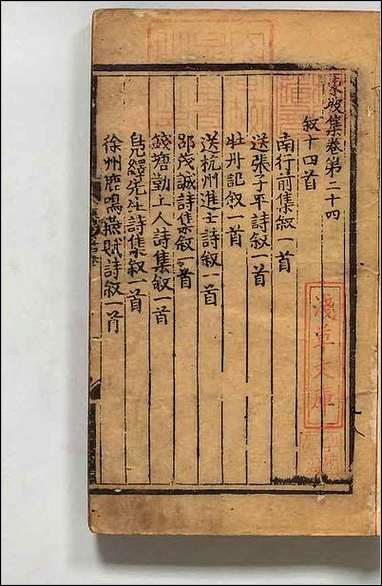 東坡集卷第二十四
叙十四首
南行前集叙一首
送張子平詩叙一首
牡丹記叙一首
送杭州進士詩叙一首
邵茂誠詩集叙一首
錢塘勤上人詩集叙一首
鳧繹先生詩集叙一首
徐州鹿鳴燕賦詩叙一首
淺草文庫